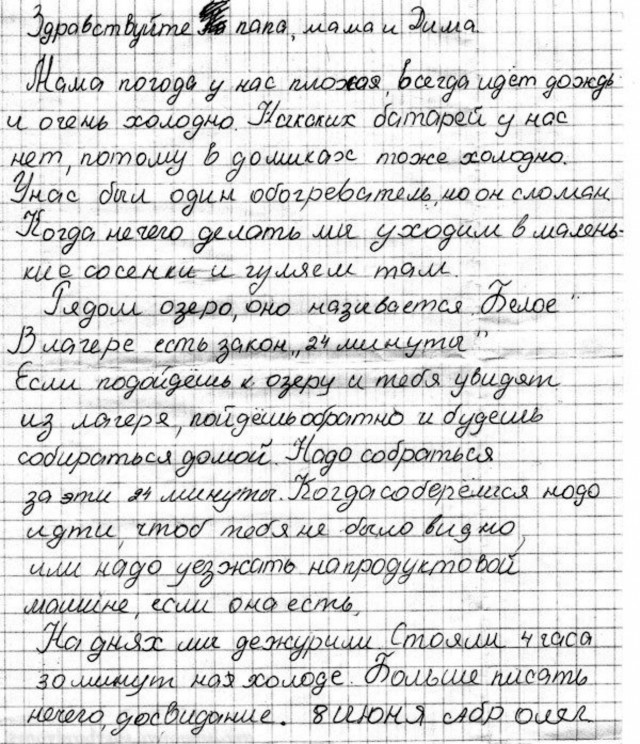 Здравствуйте папа, мама и Дима.
Мама погода у нас плохая, всегда идёт дождь
и очень холодно. Никаких батарей у нас
нет, потому в домиках тоже холодно.
У нас был один обогреватель, но он сломан.
Когда нечего делать мы уходим в малень-
кие сосенки и гуляем там.
Рядом озеро, оно называется „Белое"
В лагере есть закон „24 минуты"
Если подойдёшь к озеру и тебя увидят
из лагеря, пойдёшь обратно и будешь
собираться домой. Надо собраться
за эти 24 минуты. Когда соберёмся надо
идти, чтоб тебя не было видно,
или надо уезжать на продуктовой
машине, если она есть,
На днях мы дежурили. Стояли 4 часа
на холоде. Больше писать
нечего, досвидание. 8 июня